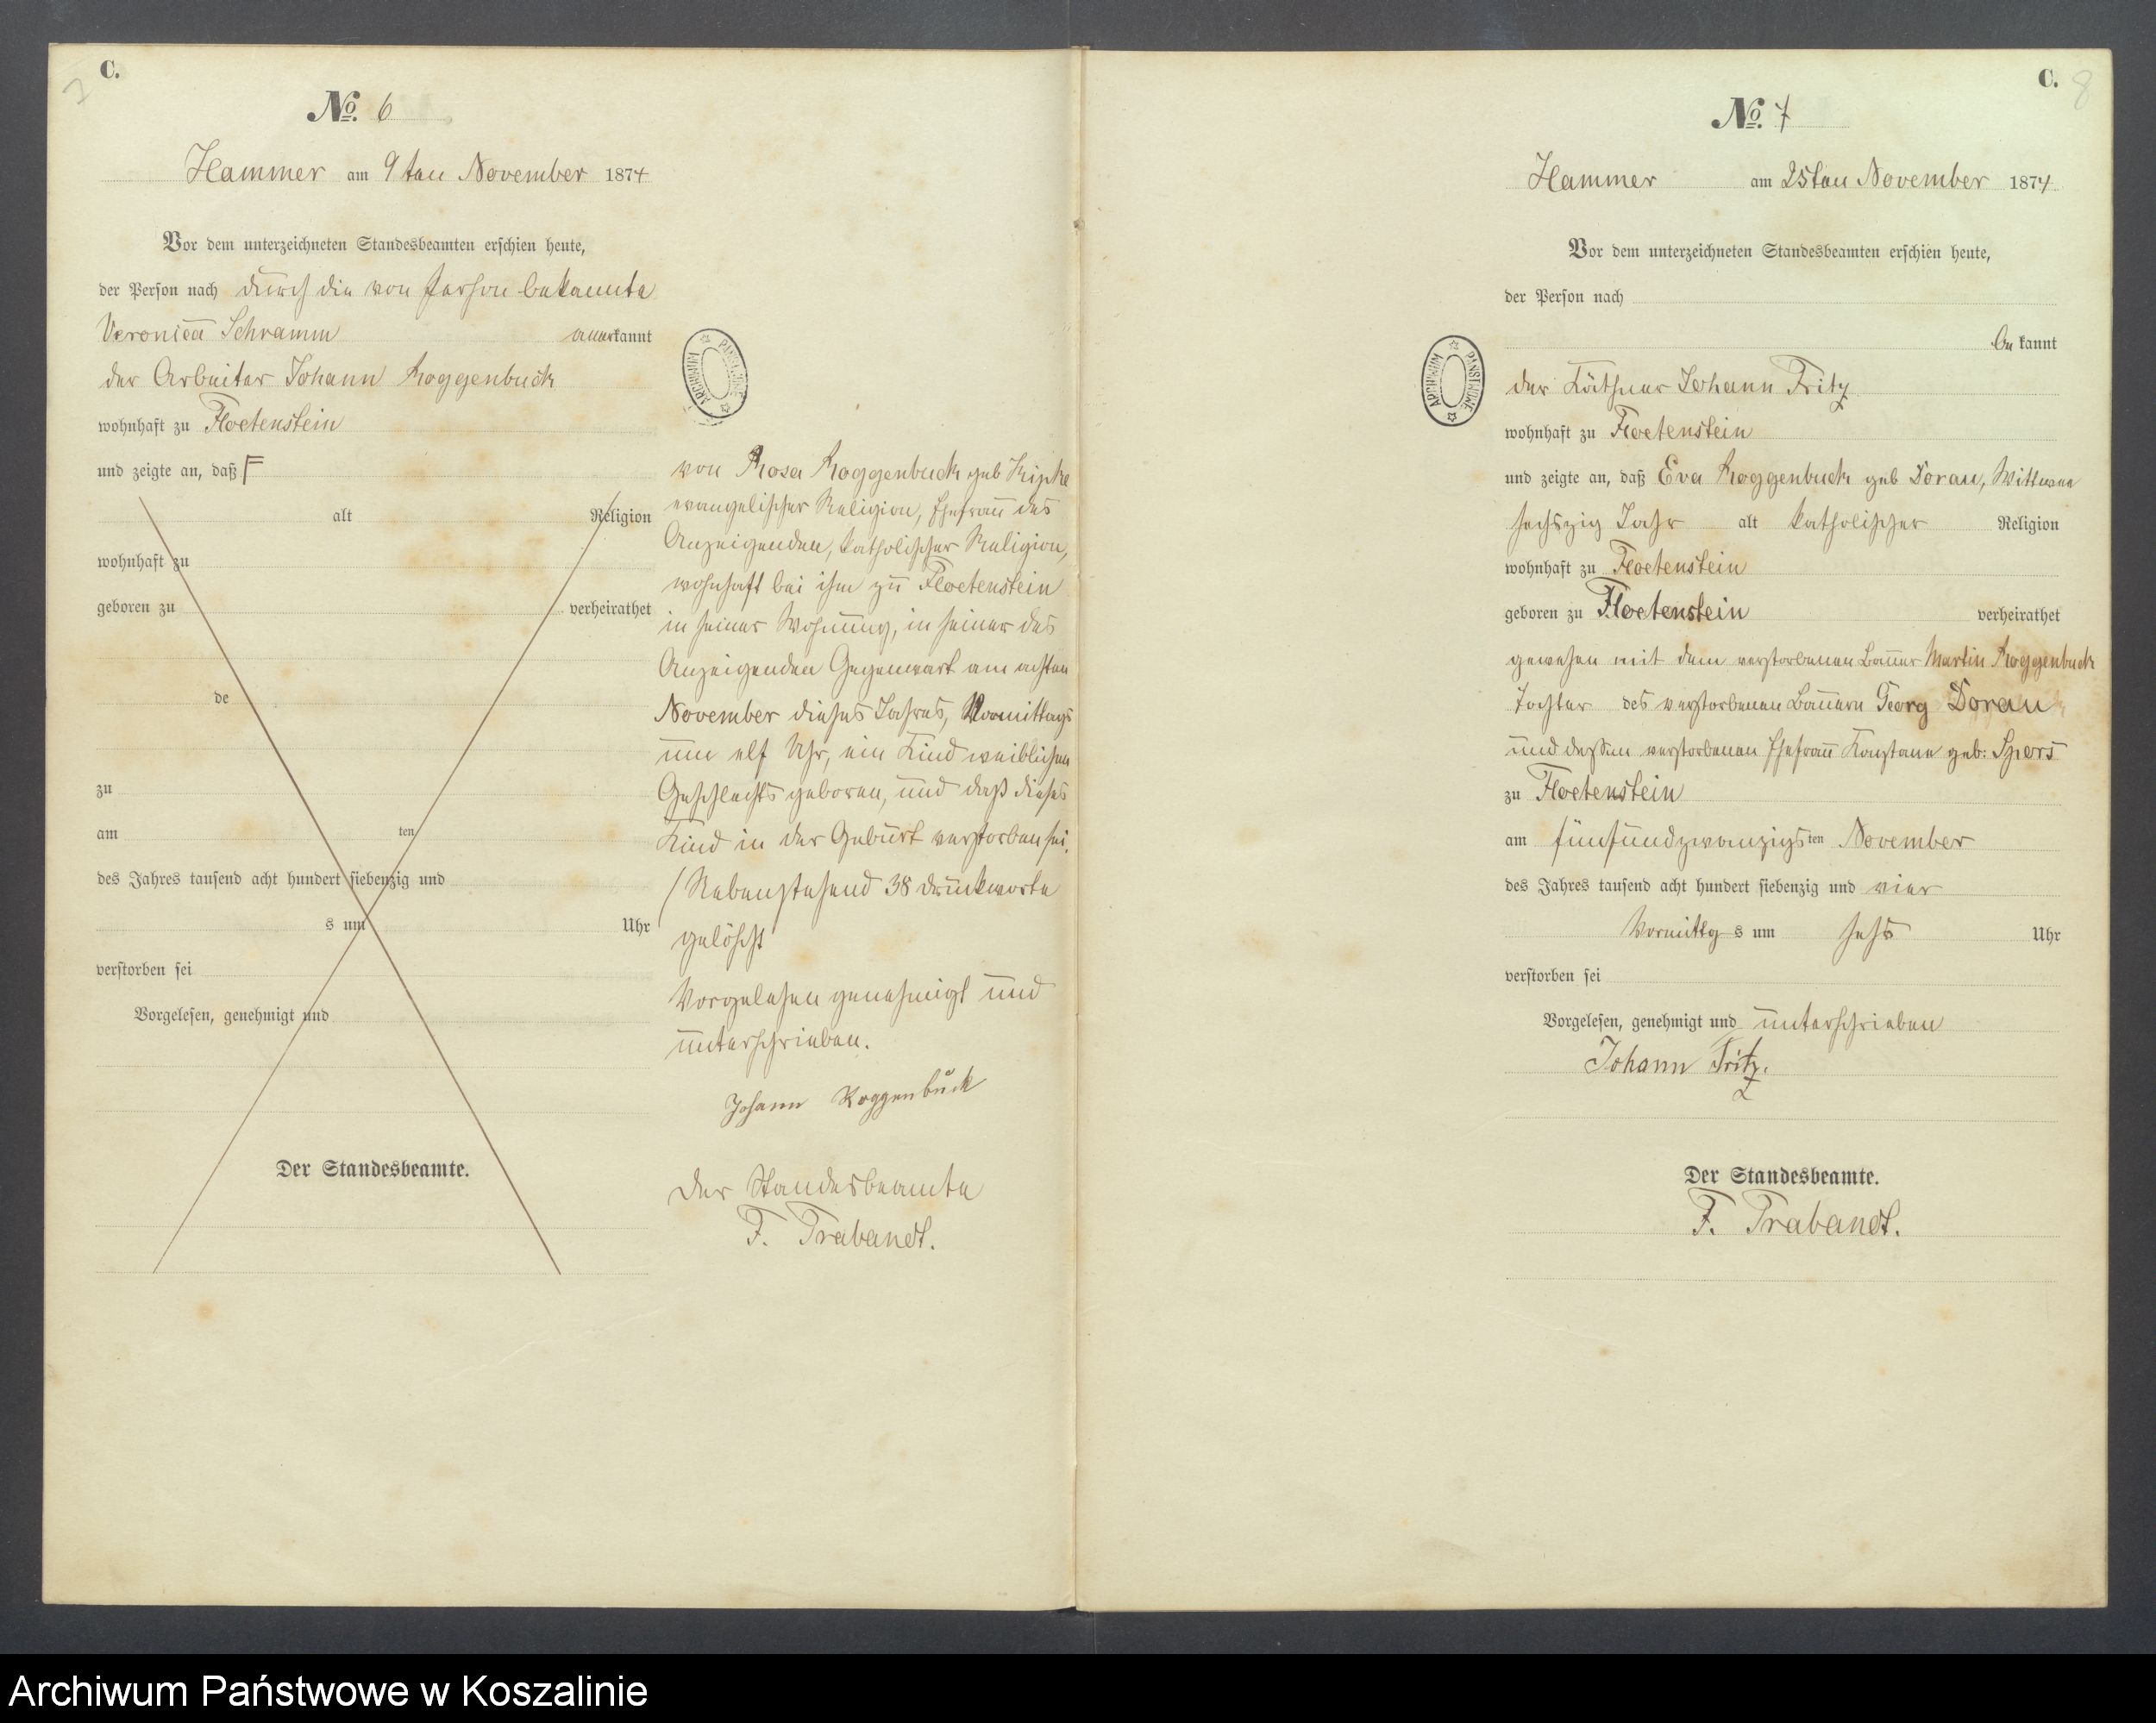 7
C.
No. 6
Hammer am 9ten November 1874
Vor dem unterzeichneten Standesbeamten erschien heute,
der Person nach durch die von Person bekannte
Veronica Schramm anerkannt
der Arbeiter Johann Roggenbuck
wohnhaft zu Floetenstein
und zeigte an, daß
alt Religion
wohnhaft zu
geboren zu verheirathet
de
zu
am ten
des Jahres tausend acht hundert siebenzig und
s um Uhr
verstorben sei
Vorgelesen, genehmigt und
Der Standesbeamte.
ARCHIWUM PAŃSTWOWE
von Rosa Roggenbuck geb Kipke
evangelischer Religion, Ehefrau des
Anzeigenden, katholischer Religion,
wohnhaft bei ihm zu Floetenstein
in seiner Wohnung, in seiner des
Anzeigenden Gegenwart am achten
November dieses Jahres, Vormittags
um elf Uhr, ein Kind weiblichen
Geschlechts geboren, und daß dieses
Kind in der Geburt verstorben sei.
Nebenstehend 38 Druckworte
gelöscht
Vorgelesen genehmigt und
unterschrieben.
Johann Roggenbuck
Der Standesbeamte
F. Trabandt.
C.
8
No. 7
Hammer am 25ten November 1874
Vor dem unterzeichneten Standesbeamten erschien heute,
der Person nach
bekannt
der Käthner Johann Fritz
wohnhaft zu Floetenstein
und zeigte an, daß Eva Roggenbuck geb Dorau, Wittwe
sechszig Jahr alt katholischer Religion
wohnhaft zu Floetenstein
geboren zu Floetenstein verheirathet
gewesen mit dem verstorbenen Bauer Martin Roggenbuck
Tochter des verstorbenen Bauern Georg Dorau
und dessen verstorbenen Ehefrau geb:
zu Floetenstein
am fünfundzwanzigsten November
des Jahres tausend acht hundert siebenzig und vier
Vormittgs um sechs Uhr
verstorben sei
Vorgelesen, genehmigt und unterschrieben
Johann Fritz.
Der Standesbeamte.
F. Trabandt.
ARCHIWUM PAŃSTWOWE
Archiwum Państwowe w Koszalinie